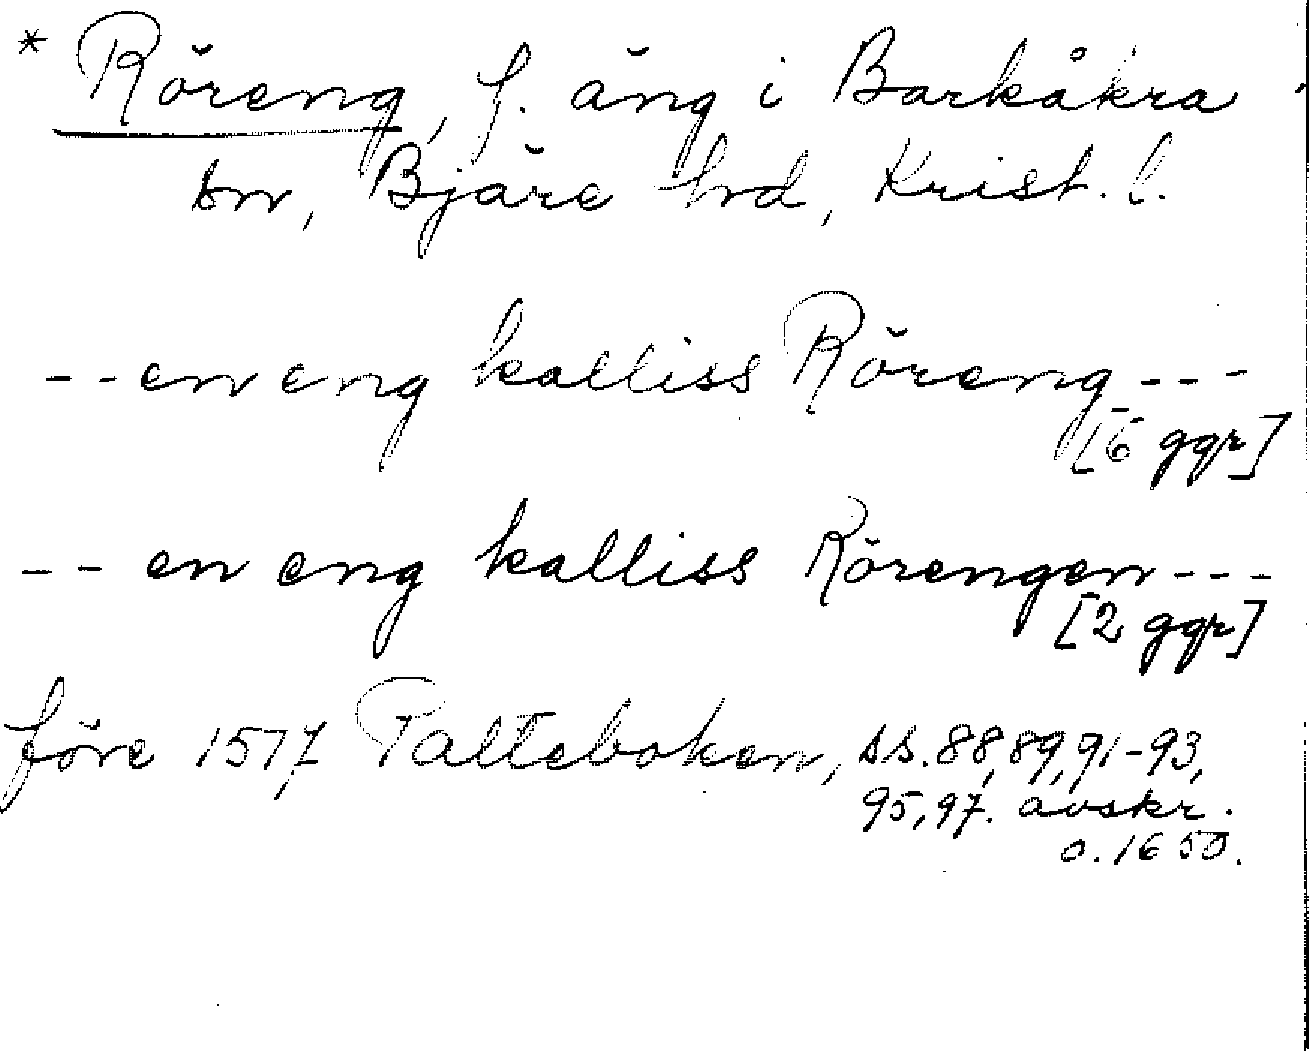 * Röreng, f. äng i Barkåkra
sn, Bjäre hd, Krist. l.
-- en eng kalliss Röreng ---
[6 ggr]
-- en eng kalliss Rörengen ---
[2 ggr]
före 1577 Palteboken, ss. 88, 89, 91-93,
95, 97. avskr.
o. 1650.